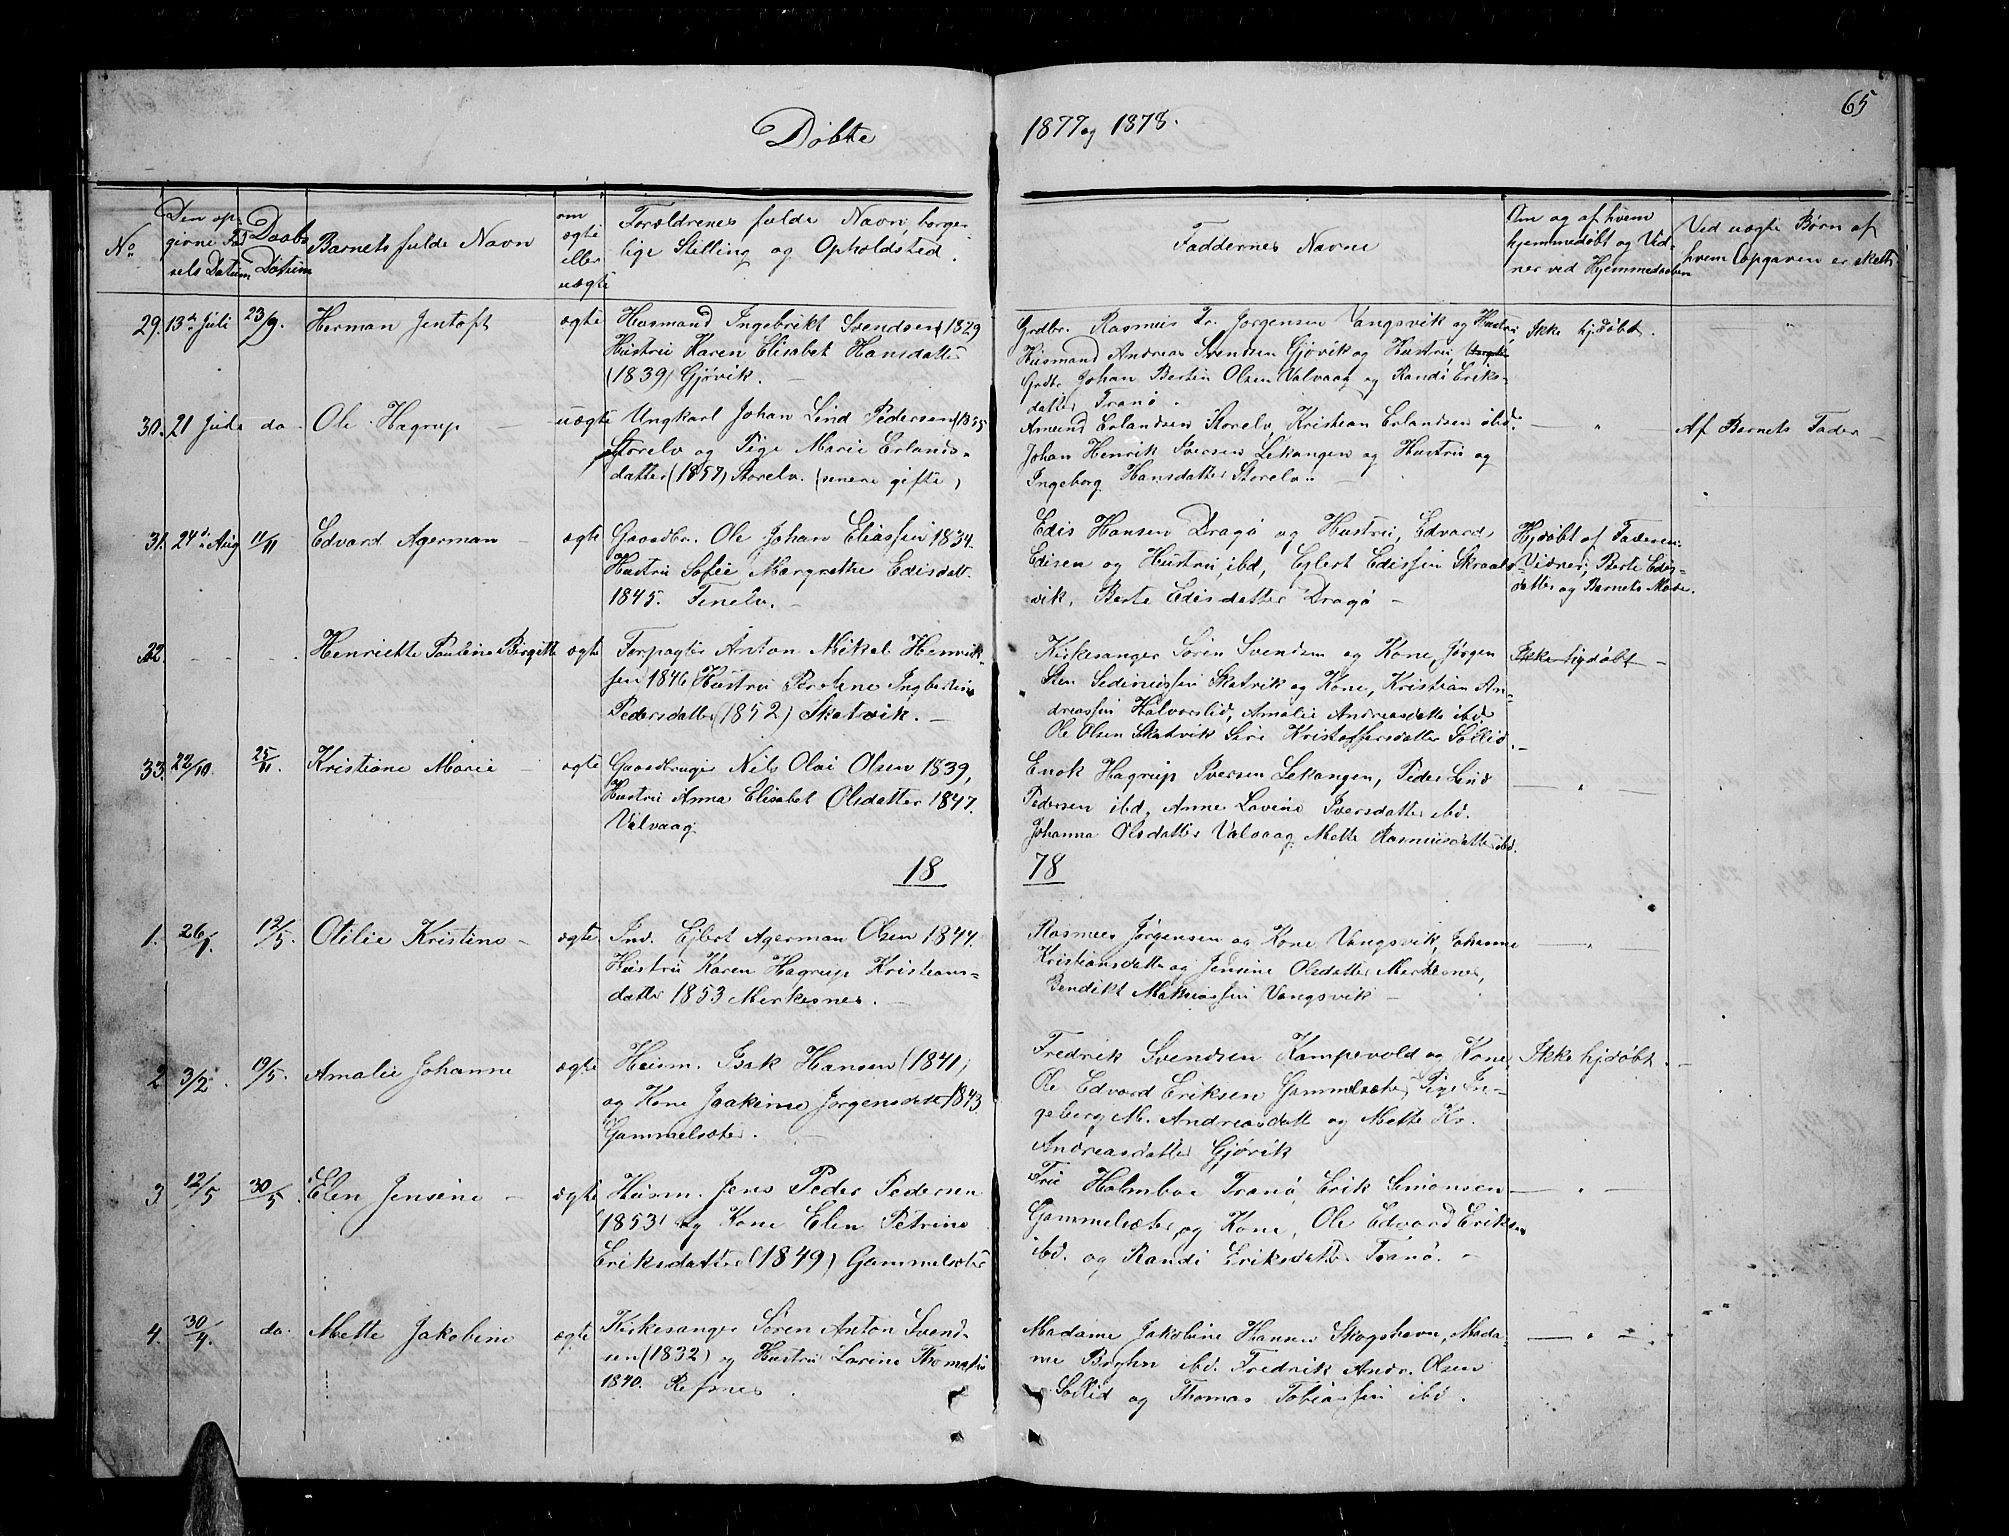 65
Døbte 1877 og 1878.
No
Den op-
givne Fød-
sels Datum
Daabs
Datum
Barnets fulde Navn
om
ægte
eller
uægte
Forældrenes fulde Navn, borger-
lige Stilling og Opholdsted.
Faddernes Navne
Om og af hvem
hjemmedøbt og Vid-
ner ved Hjemmedaaben
Ved uægte Børn af
hvem Opgaven er skett
29. 13de Juli 23/9. Herman Jentoft ægte
Husmand Ingebrikt Svendsen (1829
Hustru Karen Elisabet Hansdatter
(1839) Gjøvik. —
Grdbr. Rasmus Tr. Jørgensen Vangsvik og Hustru,
Husmand Andreas Svendsen Gjøvik og Hustru,
Grdbr. Johan Bertin Olsen Valvaag og Randi Eriks-
datter Tranø.
Ikke hjdøbt.
30. 21 Juli do. Ole Hagrup — uægte
Ungkarl Johan Lind Pedersen (1855
Storelv og Pige Marie Erlands-
datter (1857) Storelv. (senere gifte)
Amund Erlandsen Storelv, Kristian Erlandsen ibd.
Johan Henrik Iversen Lekangen og Hustru og
Ingeborg Hansdatter Storelv. —
— " —
Af Barnets Fader —
31. 24de Aug 11/11 Edvard Agerman — ægte
Gaardbr. Ole Johan Eliassen 1834.
og
Hustru Sofie Margrethe Edisdatt.
1845. Tenelv. —
Edis Hansen Dragø og Hustru, Edvard
Edisen og Hustru, ibd, Eylert Edissen Skraals-
vik, Berte Edisdatter Dragø —
Hjdøbt af Faderen.
Vidner; Berte Edis-
datter og Barnets Moder.
32. - - - Henriette Pauline Birgitte ægte
Forpagter Anton Mikal Henrik-
sen 1846 Hustru Peroline Ingbertine
Pedersdatter (1852) Skatvik. —
Kirkesanger Søren Svendsen og Kone, Jørgen
Sten Sedeniussen Skatvik og Kone, Kristian An-
dreassen Halvorslid, Amalie Andreasdatter ibd
Ole Olsen Skatvik Siri Kristoffersdatter Sollid. —
Ikke hjdøbt —
33. 22/10 25/11. Kristiane Marie — ægte
Gaardbruger Nils Olai Olsen 1839,
Hustru Anna Elisabet Olsdatter 1847.
Valvaag.
Enok Hagrup Iversen Lekangen, Peder Lind
Pedersen ibd, Anne Lovine Iversdatter ibd.
Johanna Olsdatter Valvaag, Mette Rasmusdatter ibd.
— " —
18 78
1. 26/1 12/5. Otilie Kristine — ægte
Ind. Ejlert Agerman Olsen 1844.
Hustru Karen Hagrup Kristians-
datter 1853 Merkesnes. —
Rasmus Jørgensen og Kone Vangsvik, Johanne
Kristiansdatter og Jensine Olsdatter Merkesnes,
Bendikt Mathiassen Vangsvik —
— " —
2 3/2. 19/5. Amalie Johanne ægte
Husm. Isak Hansen (1841)
og Kone Joakime Jørgensdatt 1843
Gammelsæter. —
Fredrik Svendsen Kampevold og Kone,
Ole Edvard Eriksen Gammelsæter, Pige In-
geborg M. Andreasdatt og Mette Kr.
Andreasdatter Gjøvik
Ikke hjdøbt. —
3 12/5 30/5 Elen Jensine — ægte
Husm. Jens Peder Pedersen
(1853) og Kone Elen Petrine
Eriksdatter (1849) Gammelsæter
Frue Holmboe Tranø, Erik Simonsen
Gammelsæter, og Kone, Ole Edvard Eriksen
ibd. og Randi Eriksdatter Tranø. —
— " —
4. 30/4. do. Mette Jakobine ægte
Kirkesanger Søren Anton Svend-
sen (1832) og Hustru Lovine Thomasd.
1840. Refsnes.
Madame Jakobine Hansen Skogshavn, Mada-
me ibd. Fredrik Andr. Olsen
Sollid og Thomas Tobiassen ibd.
— " —